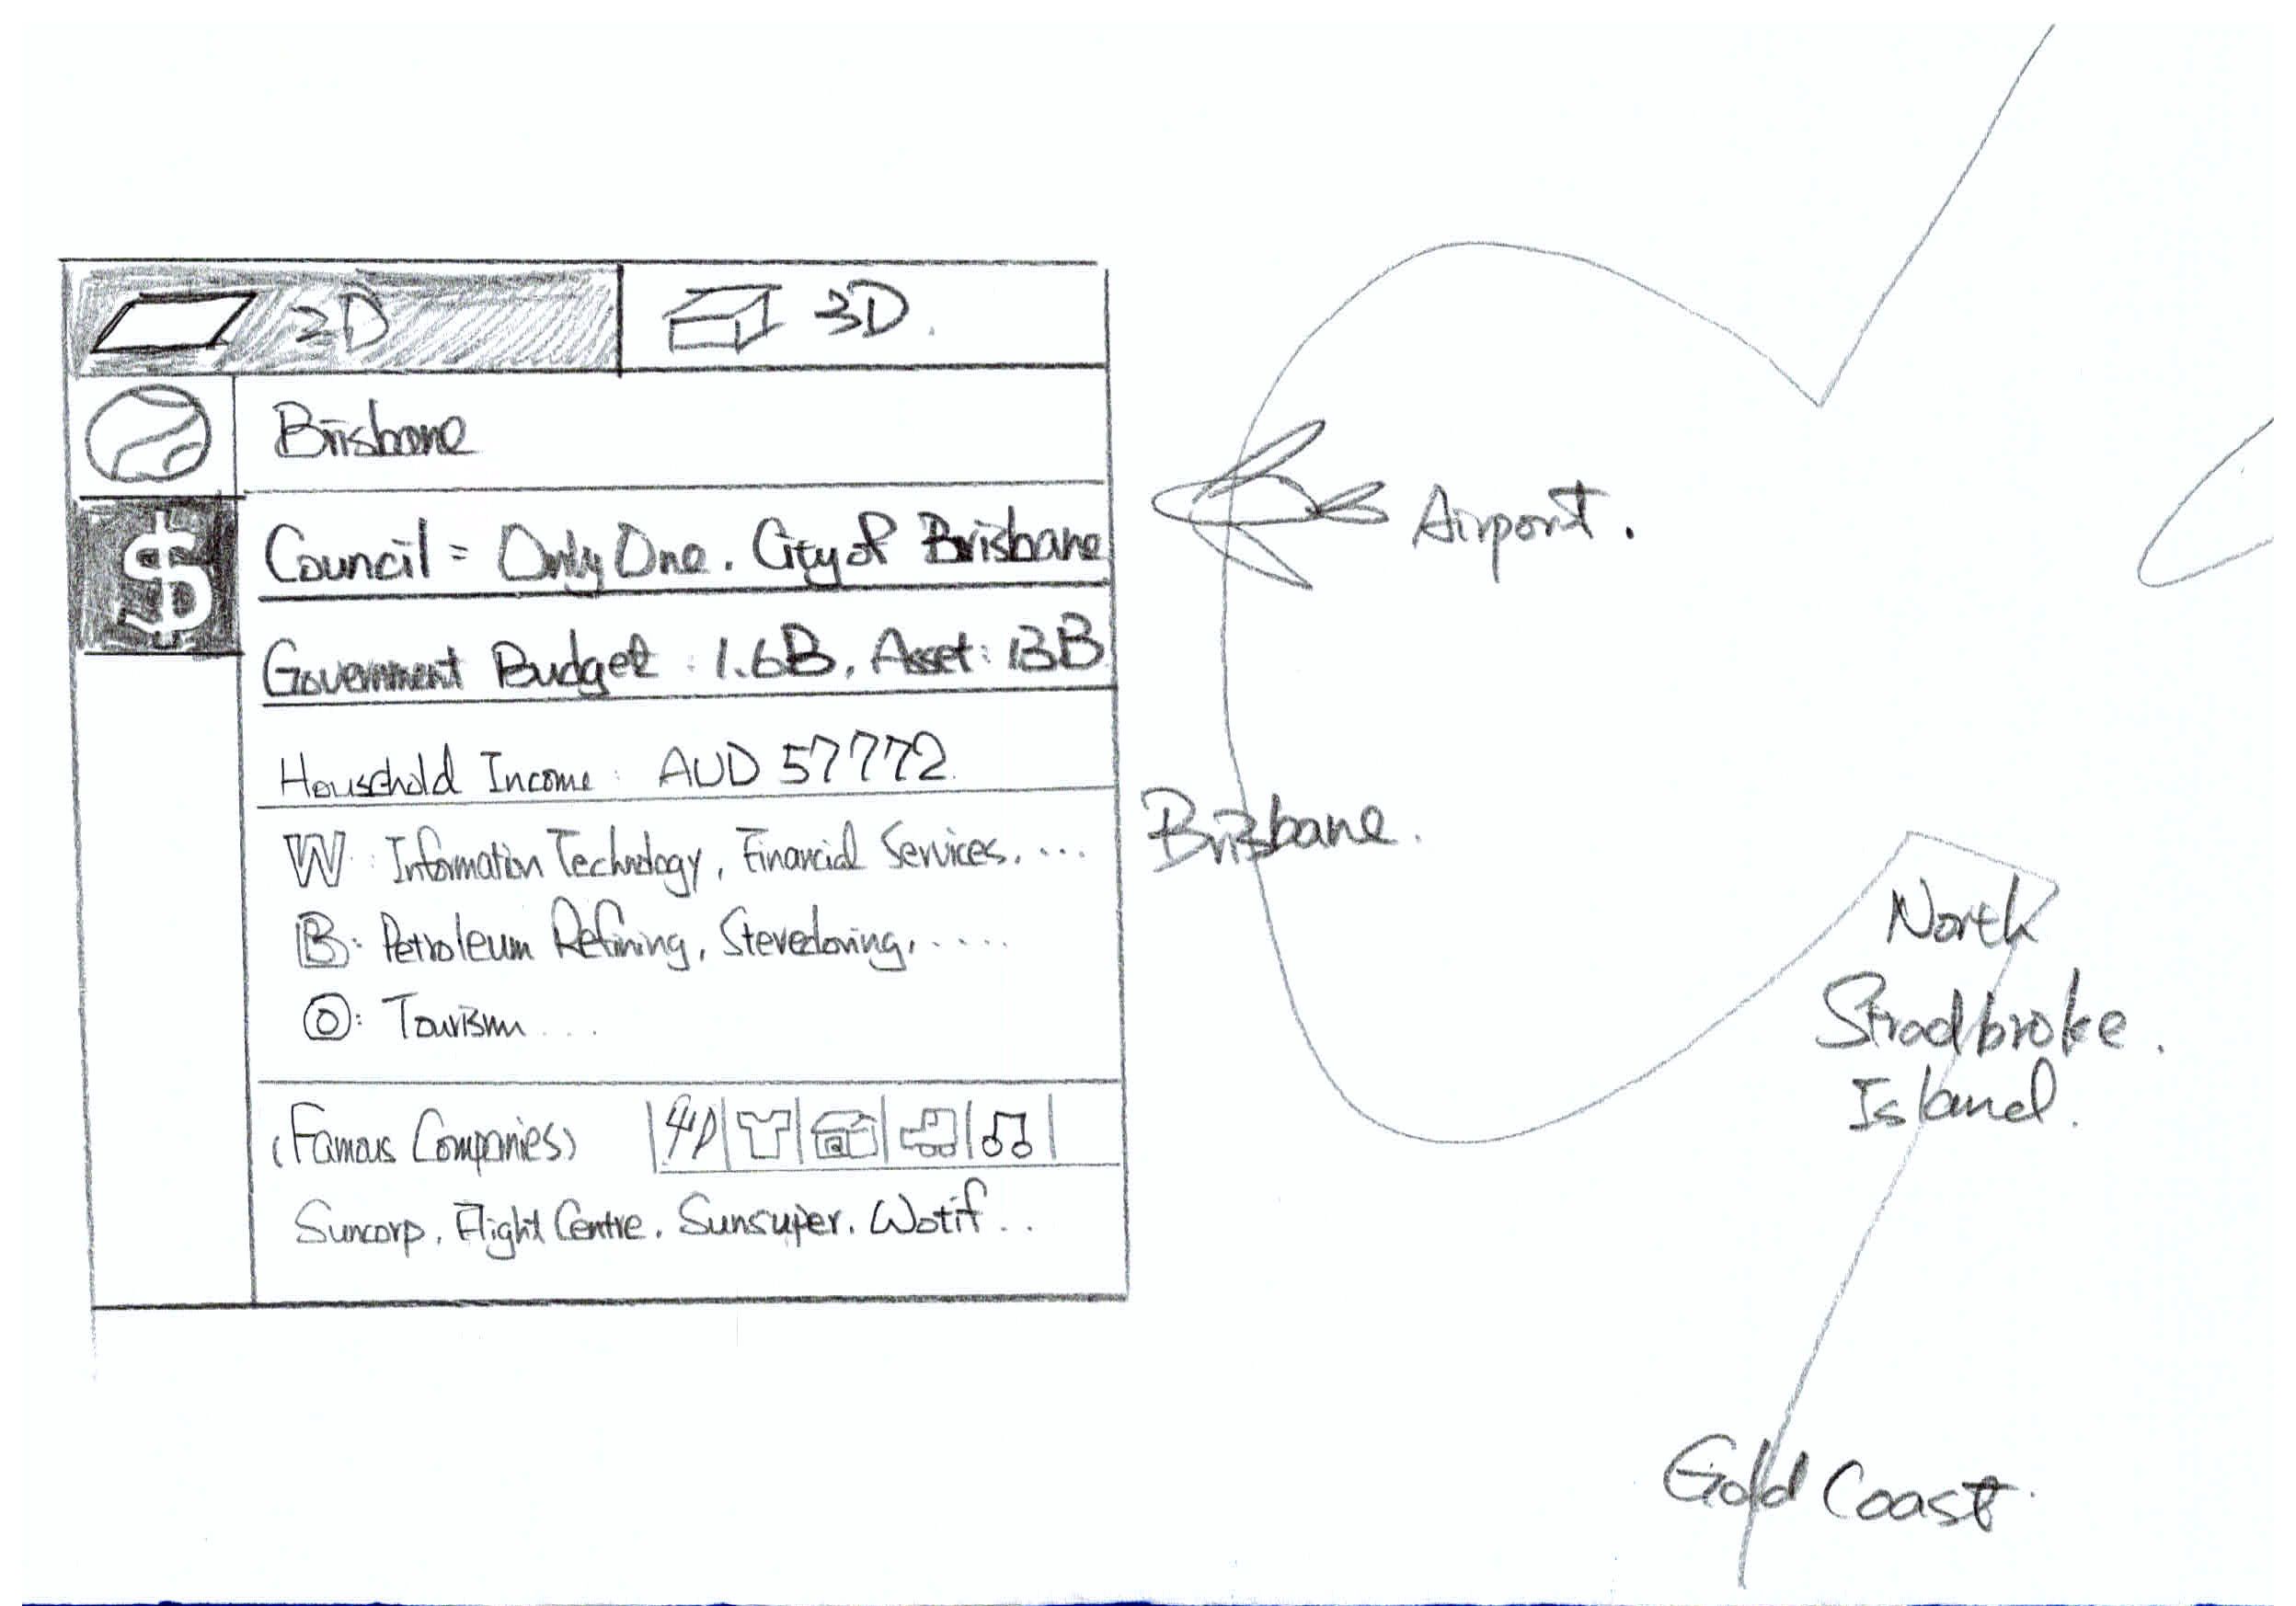 2D
3D.
Brisbane
$
Council = Only One. City of Brisbane
Government Budget : 1.6B, Asset: 13B
Household Income : AUD 57772.
W : Information Technology, Financial Services, ...
B : Petroleum Refining, Stevedoring, .....
O : Tourism ...
(Famous Companies)
Suncorp, Flight Centre, Sunsuper, Wotif ..
Airport.
Brisbane.
North
Stradbroke.
Island.
Gold Coast.